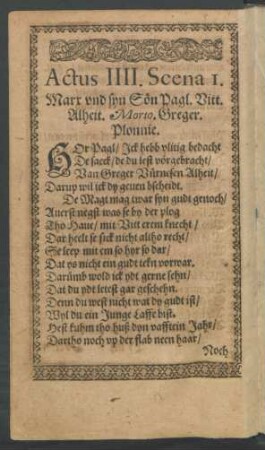 Actus IIII. Scena 1.
Marx vnd syn Sön Pagl. Vitt.
Alheit. Morio. Greger.
Plonnie.
HOr Pagl/ Jck hebb vlitig bedacht
De saeck/ de du lest vörgebracht/
Van Greger Vürnesen Alheit/
Darup wil ick dy geuen bscheidt.
De Magt mag iwar syn gudt genoch/
Auerst negst was se by der plog
Tho Haue/ mit Vitt erem knecht/
Dar heelt se sick nicht altho recht/
Se leep mit em so hyr so dar/
Dat ys nicht ein gudt teken vorwar.
Darümb wold ick ydt gerne sehn/
Dat du ydt letest gar geschehn.
Denn du west nicht wat dy gudt ist/
Wyl du ein Junge Laffe bist.
Hest kuhm tho huß dyn vafftein Jahr/
Dartho noch vp der flab neen haar/
Noch